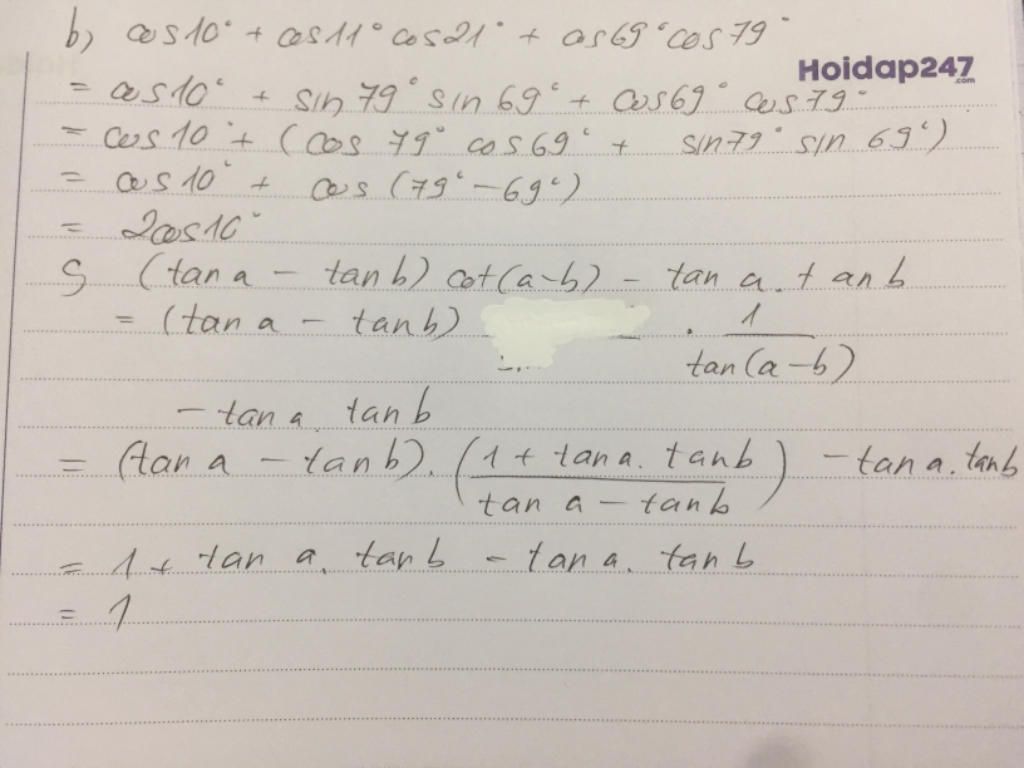 b) cos10° + cos11° cos21° + cos69° cos79°
Hoidap247
.com
= cos10° + sin79° sin69° + cos69° cos79°
= cos10° + (cos 79° cos69° + sin79° sin 69°)
= cos10° + cos (79° - 69°)
= 2cos10°
(tan a - tan b) cot(a-b) - tan a. tan b
= (tan a - tan b) . 1 / tan(a-b)
- tan a. tan b
= (tan a - tan b). (1 + tan a. tan b / tan a - tan b) - tan a. tan b
= 1 + tan a. tan b - tan a. tan b
= 1